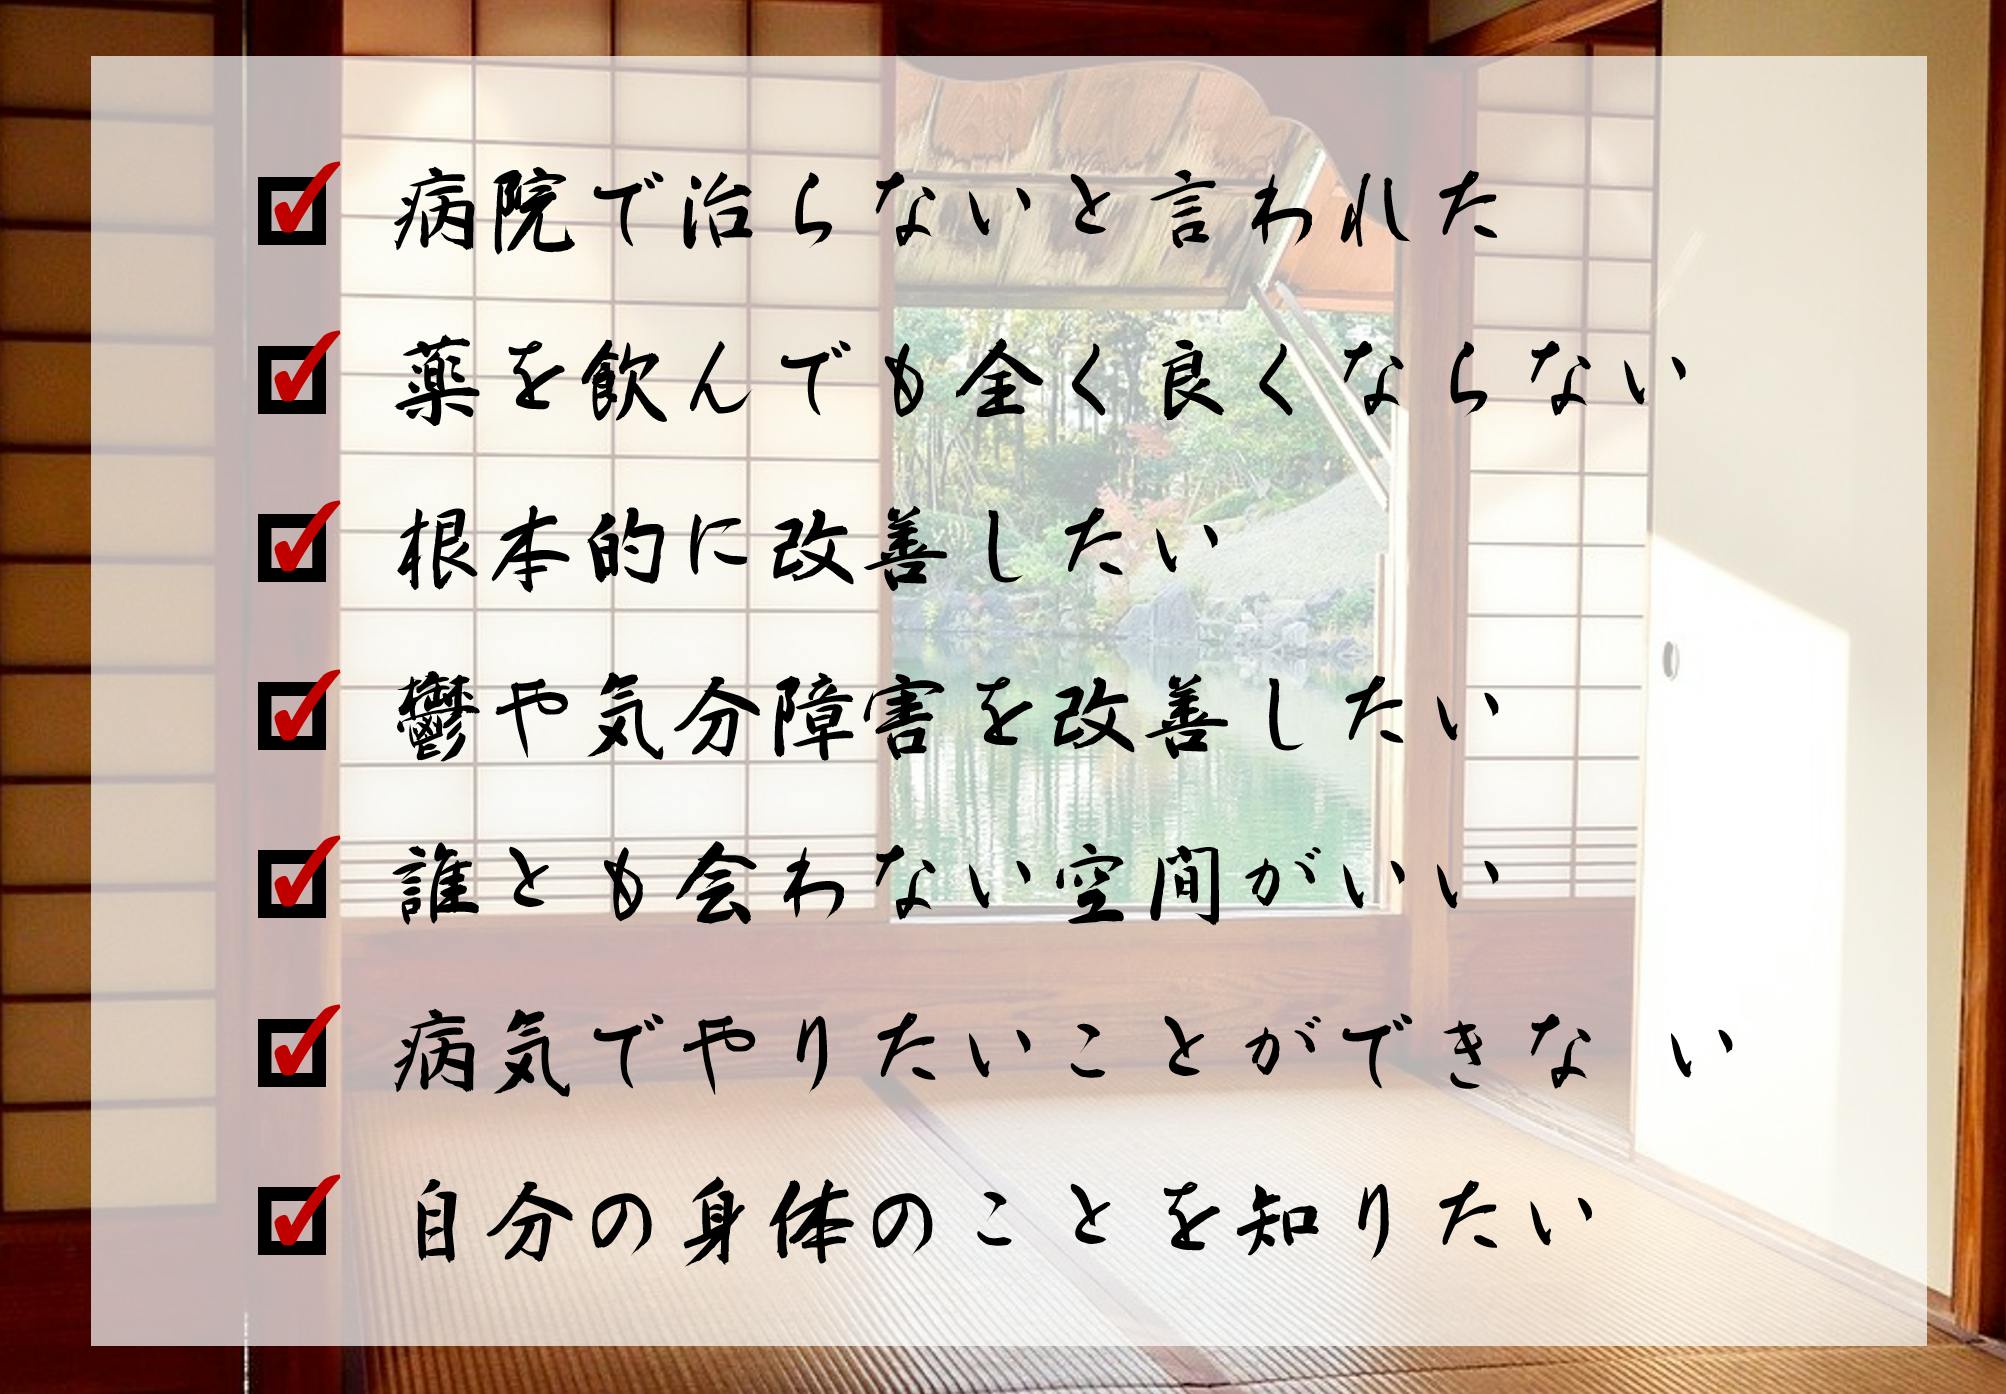 病院で治らないと言われた
薬を飲んでも全く良くならない
根本的に改善したい
鬱や気分障害を改善したい
誰とも会わない空間がいい
病気でやりたいことができな い
自分の身体のことを知りたい